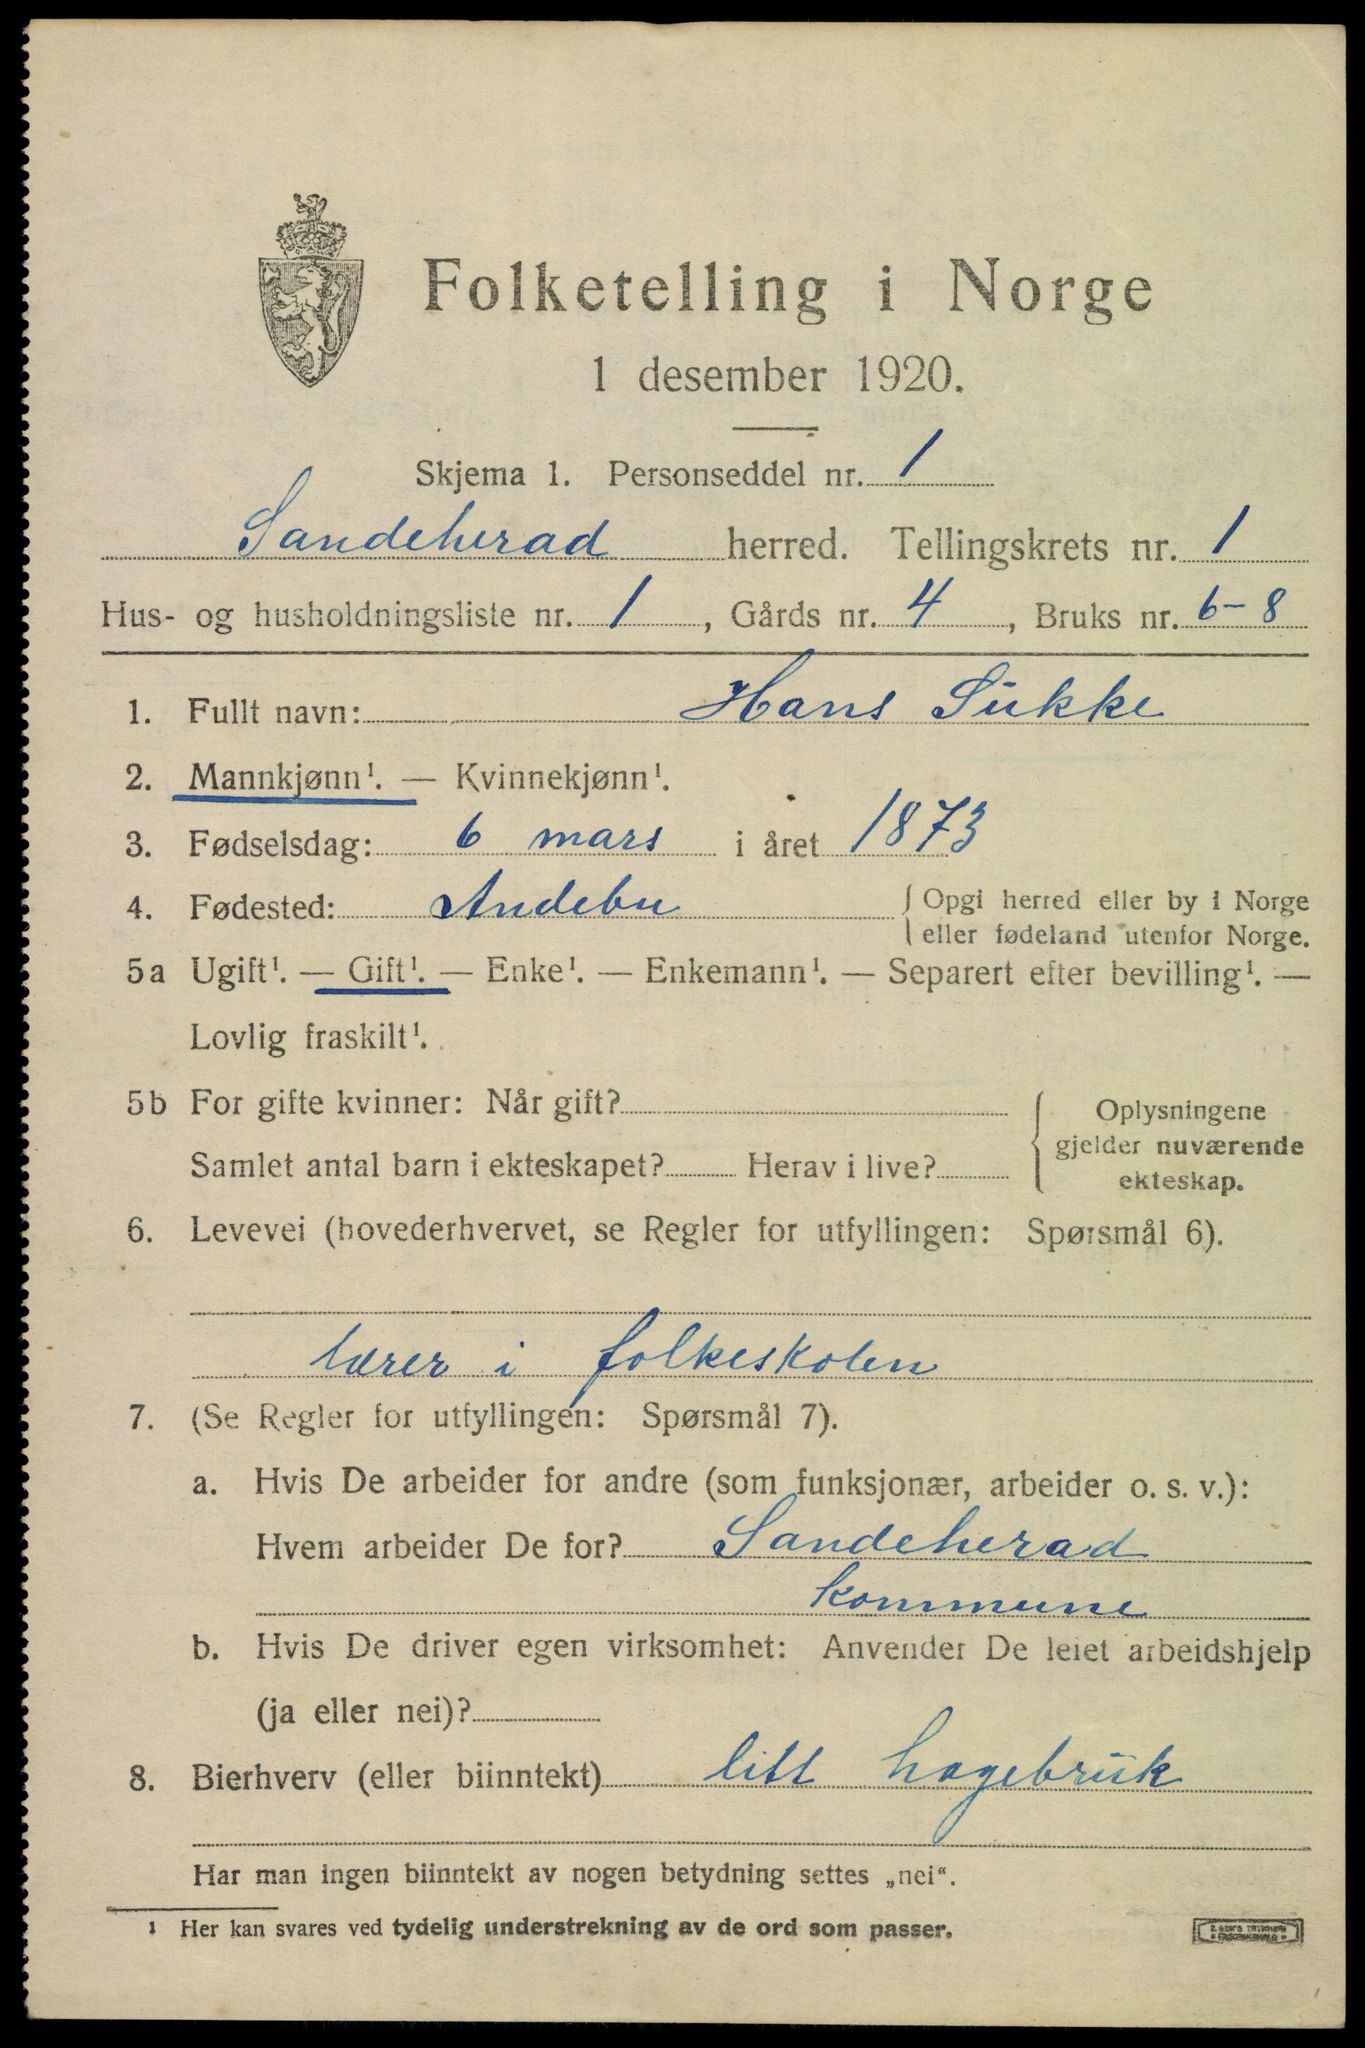 Folketelling i Norge
1 desember 1920.
Skjema 1. Personseddel nr. 1
Sandeherad herred. Tellingskrets nr. 1
Hus- og husholdningsliste nr. 1, Gårds nr. 4, Bruks nr. 6-8
1. Fullt navn: Hans Sukke
2. Mannkjønn¹. — Kvinnekjønn¹.
3. Fødselsdag: 6 mars i året 1873
4. Fødested: Andebu { Opgi herred eller by i Norge
eller fødeland utenfor Norge.
5a Ugift¹. — Gift¹. — Enke¹. — Enkemann¹. — Separert efter bevilling¹. —
Lovlig fraskilt¹.
5b For gifte kvinner: Når gift? { Oplysningene
gjelder nuværende
ekteskap.
Samlet antal barn i ekteskapet? Herav i live?
6. Levevei (hovederhvervet, se Regler for utfyllingen: Spørsmål 6).
lærer i folkeskolen
7. (Se Regler for utfyllingen: Spørsmål 7).
a. Hvis De arbeider for andre (som funksjonær, arbeider o. s. v.):
Hvem arbeider De for? Sandeherad
kommune
b. Hvis De driver egen virksomhet: Anvender De leiet arbeidshjelp
(ja eller nei)?
8. Bierhverv (eller biinntekt) litt hagebruk
Har man ingen biinntekt av nogen betydning settes „nei“.
¹ Her kan svares ved tydelig understrekning av de ord som passer.